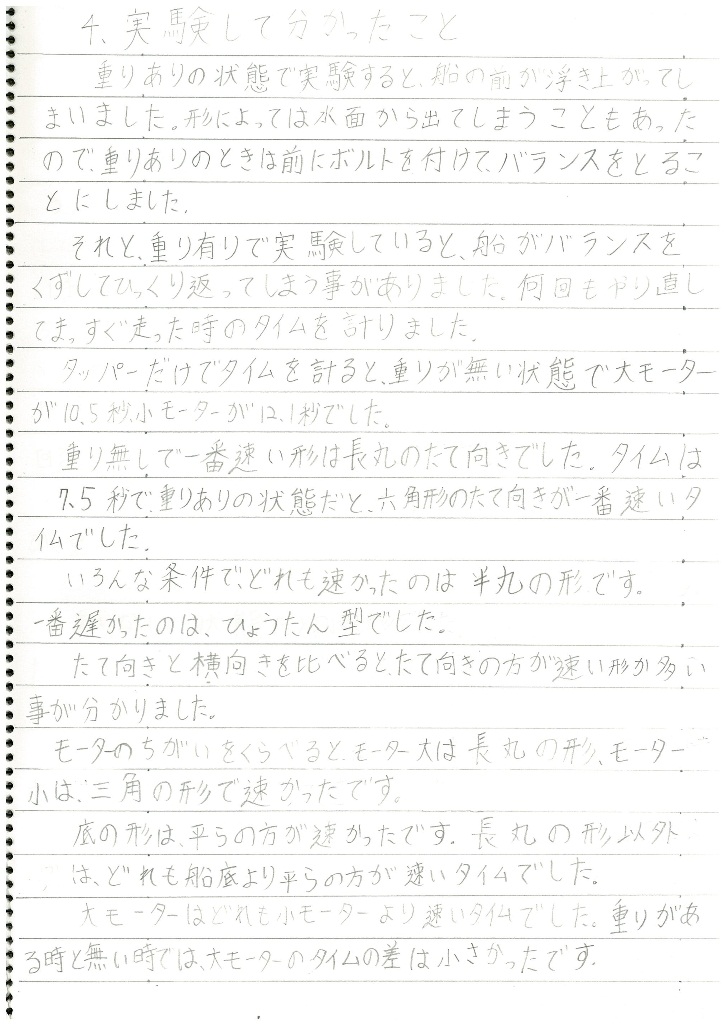 4、実験して分かったこと
重りありの状態で実験すると、船の前が浮き上がってし
まいました。形によっては水面から出てしまうこともあった
ので、重りありのときは前にボルトを付けて、バランスをとるこ
とにしました。
それと、重り有りで実験していると、船がバランスを
くずしてひっくり返ってしまう事がありました。何回もやり直し
てまっすぐ走った時のタイムを計りました。
タッパーだけでタイムを計ると、重りが無い状態で大モーター
が10、5秒、小モーターが12、1秒でした。
重り無しで一番速い形は長丸のたて向きでした。タイムは
7、5秒で、重りありの状態だと、六角形のたて向きが一番速いタ
イムでした。
いろんな条件で、どれも速かったのは半丸の形です。
一番遅かったのは、ひょうたん型でした。
たて向きと横向きを比べると、たて向きの方が速い形が多い
事が分かりました。
モーターのちがいをくらべると、モーター大は長丸の形、モーター
小は、三角の形で速かったです。
底の形は、平らの方が速かったです。長丸の形以外
は、どれも船底より平らの方が速いタイムでした。
大モーターはどれも小モーターより速いタイムでした。重りがあ
る時と無い時では、大モーターのタイムの差は小さかったです。